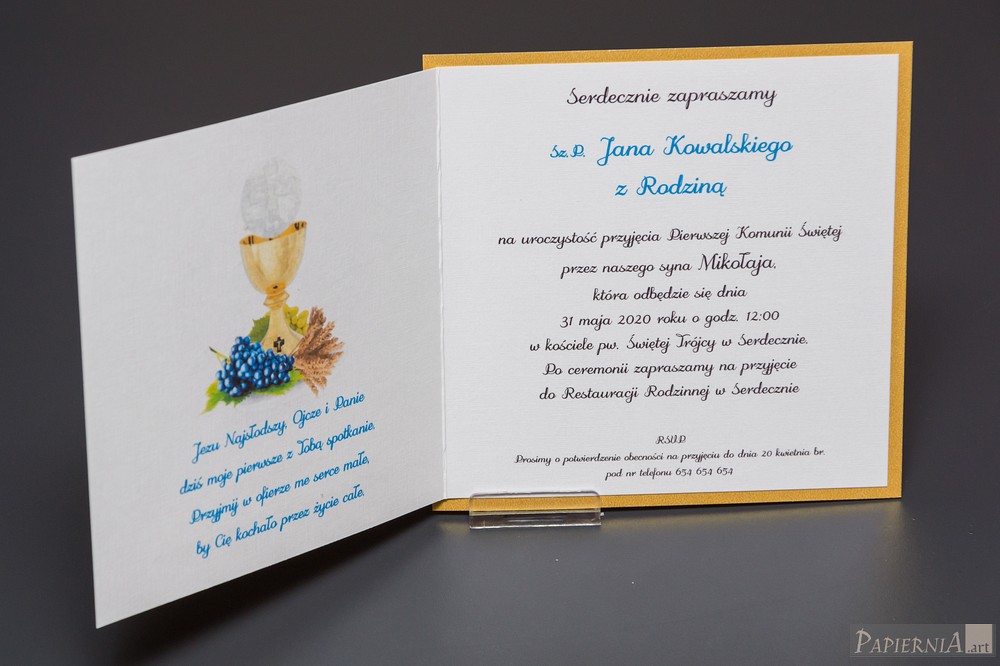 Jezu Najsłodszy, Ojcze i Panie
dziś moje pierwsze z Tobą spotkanie.
Przyjmij w ofierze me serce małe,
by Cię kochało przez życie całe.
Serdecznie zapraszamy
Sz.P. Jana Kowalskiego
z Rodziną
na uroczystość przyjęcia Pierwszej Komunii Świętej
przez naszego syna Mikołaja,
która odbędzie się dnia
31 maja 2020 roku o godz. 12:00
w kościele pw. Świętej Trójcy w Serdecznie.
Po ceremonii zapraszamy na przyjęcie
do Restauracji Rodzinnej w Serdecznie
RSVP
Prosimy o potwierdzenie obecności na przyjęciu do dnia 20 kwietnia br.
pod nr telefonu 654 654 654
PAPIERNIA.art